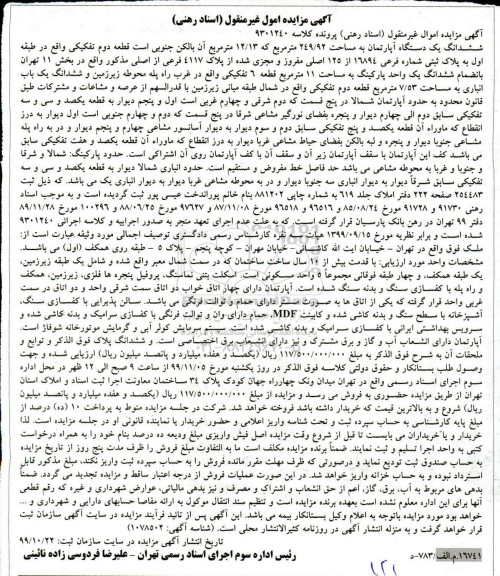 آگهی مزایده اموال غیرمنقول (اسناد رهنی)
آگهی مزایده اموال غیرمنقول (اسناد رهنی) پرونده کلاسه ۹۳۰۱۲۴۰
ششدانگ یک دستگاه آپارتمان به مساحت ۲۴۹/۹۲ مترمربع که ۱۲/۱۳ مترمربع آن بالکن جنوبی است قطعه دوم تفکیکی واقع در طبقه
اول به پلاک ثبتی شماره فرعی ۱۶۸۹۴ از ۱۲۵ اصلی مفروز و مجزی شده از پلاک ۴۱۱۷ فرعی از اصلی مذکور واقع در بخش ۱۱ تهران
بانضمام ششدانگ یک واحد پارکینگ به مساحت ۱۱ مترمربع قطعه ۶ تفکیکی واقع در غرب راه پله محوطه زیرزمین و ششدانگ یک باب
انباری به مساحت ۷/۵۳ مترمربع قطعه دوم تفکیکی واقع در شمال طبقه میانی زیرزمین با قدرالسهم از عرصه و مشاعات و مشترکات طبق
قانون محدود به حدود آپارتمان شمالا در پنج قسمت که دوم شرقی و چهارم غربی است اول و پنجم دیوار به قطعه یکصد و سی و سه
تفکیکی سابق دوم الی چهارم دیوار و پنجره بفضای نورگیر مشاعی شرقا در پنج قسمت که دوم و چهارم جنوبی است اول دیوار به درز
انقطاع که ماوراء آن قطعه یکصد و پنج تفکیکی سابق دوم و سوم دیوار به دیوار آسانسور مشاعی چهارم و پنجم دیوار و در به راه پله
مشاعی جنوبا دیوار و پنجره و لبه بالکن بفضای حیاط مشاعی غربا دیوار به درز انقطاع که ماوراء آن قطعه یکصد و هفت تفکیکی سابق
می باشد کف این آپارتمان با سقف آپارتمان زیر آن و سقف آن با کف آپارتمان روی آن اشتراکی است. حدود پارکینگ: شمالا و شرقا
و جنوبا و غربا به محوطه مشاعی می باشد حد فاصل خط مفروض و مستقیم است. حدود انباری شمالا دیوار به قطعه یکصد و سی و سه
تفکیکی سابق شرقاً دیوار به دیوار انباری سه جنوبا دیوار و در به محوطه مشاعی غربا دیوار به دیوار انباری یک می باشد. که ذیل ثبت
۲۵۴۴۸۳ صفحه ۲۲۲ دفتر املاک جلد ۶۱۹ به شماره چاپی ۸۸۱۲۰۲ بنام خانم پوراندخت عیسی پور ثبت گردیده است و به موجب اسناد
رهنی ۹۱۷۳۰ و ۹۱۷۲۸ مورخ ۸۵/۰۸/۲۴ و ۹۶۵۱۶ و ۹۶۵۱۸ مورخ ۸۷/۱۱/۰۸ و ۹۷۶۲۷ مورخ ۸۸/۰۶/۲۵ و ۱۰۰۲۹۶ مورخ ۸۹/۱۱/۲۸
دفتر ۹۹ تهران در رهن بانک پارسیان قرار گرفته است که به علت عدم اجرای تعهد منجر به صدور اجراییه و کلاسه اجرائی ۹۳۰۱۲۴۰
شده است و برابر نظریه مورخ ۱۳۹۹/۰۹/۱۵ هیات سه نفره کارشناس رسمی دادگستری توصیف اجمالی مورد وثیقه عبارت است از:
ملک فوق واقع در تهران – خیابان آیت الله کاشانی – خیابان مهران – کوچه پنجم – پلاک ۵ – طبقه روی همکف (اول) می باشد.
مشخصات واحد مورد ارزیابی: با قدمت بیش از ۱۷ سال ساخت ساختمان که در سمت شمال معبر واقع شده و شامل یک طبقه زیرزمین،
یک طبقه همکف، و چهار طبقه فوقانی مجموعاً ۵ واحد مسکونی است. اسکلت بتنی نماسنگ، پروفیل پنجره ها فلزی، زیرزمین، همکف
و راه پله با کفسازی سنگ و بدنه سنگ شده است. آپارتمان دارای چهار اتاق خواب دو اتاق سمت شرقی واحد و دو اتاق در سمت
غربی واحد قرار گرفته که یکی از اتاق ها به صورت مستر دارای حمام و توالت فرنگی می باشد. سالن پذیرایی با کفسازی سنگ،
آشپزخانه با سطح سنگ و بدنه کاشی شده و کابینت MDF، حمام دارای وان و توالت فرنگی با کفسازی سرامیک و بدنه کاشی شده و
سرویس بهداشتی ایرانی با کفسازی سرامیک و بدنه کاشی شده است. سیستم سرمایش کولر آبی و گرمایش موتورخانه شوفاژ است.
آپارتمان دارای انشعاب آب و گاز و برق مشترک و نیز دارای انشعاب برق اختصاصی است. و ششدانگ پلاک فوق الذکر و توابع و
ملحقات آن به شرح فوق الذکر به مبلغ ۱۱۷/۵۰۰/۰۰۰/۰۰۰ ریال (یکصد و هفده میلیارد و پانصد میلیون ریال) ارزیابی شده و جهت
وصول طلب بستانکار و حقوق دولتی کلاسه فوق الذکر در روز یکشنبه مورخ ۹۹/۱۱/۰۵ از ساعت ۹ صبح الی ۱۲ ظهر در محل اداره
سوم اجرای اسناد رسمی واقع در تهران میدان ونک چهارراه جهان کودک پلاک ۳۴ ساختمان معاونت اجرا ثبت اسناد و املاک استان
تهران از طریق مزایده حضوری به فروش می رسد و مزایده از مبلغ ۱۱۷/۵۰۰/۰۰۰/۰۰۰ ریال (یکصد و هفده میلیارد و پانصد میلیون
ریال) شروع و به بالاترین قیمت که خریدار داشته باشد فروخته خواهد شد. شرکت در جلسه مزایده منوط به پرداخت ۱۰ (ده) درصد از
مبلغ پایه کارشناسی به حساب سپرده ثبت و تحت شناسه واریز اعلامی و حضور خریدار یا نماینده قانونی او در جلسه مزایده است. لذا
خریدار و یا خریداران می بایست تا قبل از شروع وقت مزایده اصل فیش واریزی مبلغ ودیعه ده درصد بنام خود را به همراه درخواست
کتبی به واحد اجرا تسلیم و ثبت نمایند. ضمناً برنده مزایده مکلف است ما به التفاوت مبلغ فروش را ظرف مدت پنج روز از تاریخ مزایده
به حساب صندوق ثبت تودیع نماید و درصورتی که ظرف مهلت مقرر مانده فروش را به حساب سپرده ثبت واریز نکند، مبلغ مذکور قابل
استرداد نبوده و به حساب خزانه واریز خواهد شد. در این صورت عملیات فروش از درجه اعتبار ساقط و مزایده تجدید می گردد. ضمناً
بدهی های مربوط به آب، برق، گاز، اعم از حق انشعاب و اشتراک و مصرف و نیز بدهی مالیاتی، عوارض شهرداری و غیره که رقم قطعی
آنها برای این اداره معلوم نشده است بعهده برنده مزایده است و تنظیم سند انتقال موکول به ارائه مفاصا حسابهای دارایی و شهرداری و ...
خواهد بود مورد مزایده باتوجه به اعلام وکیل بستانکار بیمه می باشد. این آگهی پس از تائید فرآیند مزایده در سایت آگهی سازمان ثبت
قرار خواهد گرفت و به منزله انتشار آگهی در روزنامه کثیرالانتشار محلی است. (شناسه آگهی: ۱۰۷۸۵۰۲)
تاریخ انتشار آگهی مزایده در سایت سازمان ثبت: ۹۹/۱۰/۲۲
رئیس اداره سوم اجرای اسناد رسمی تهران – علیرضا فردوسی زاده نائینی
۱۶۷۴۱/م.الف/۷۸۳-د
۱۲۱